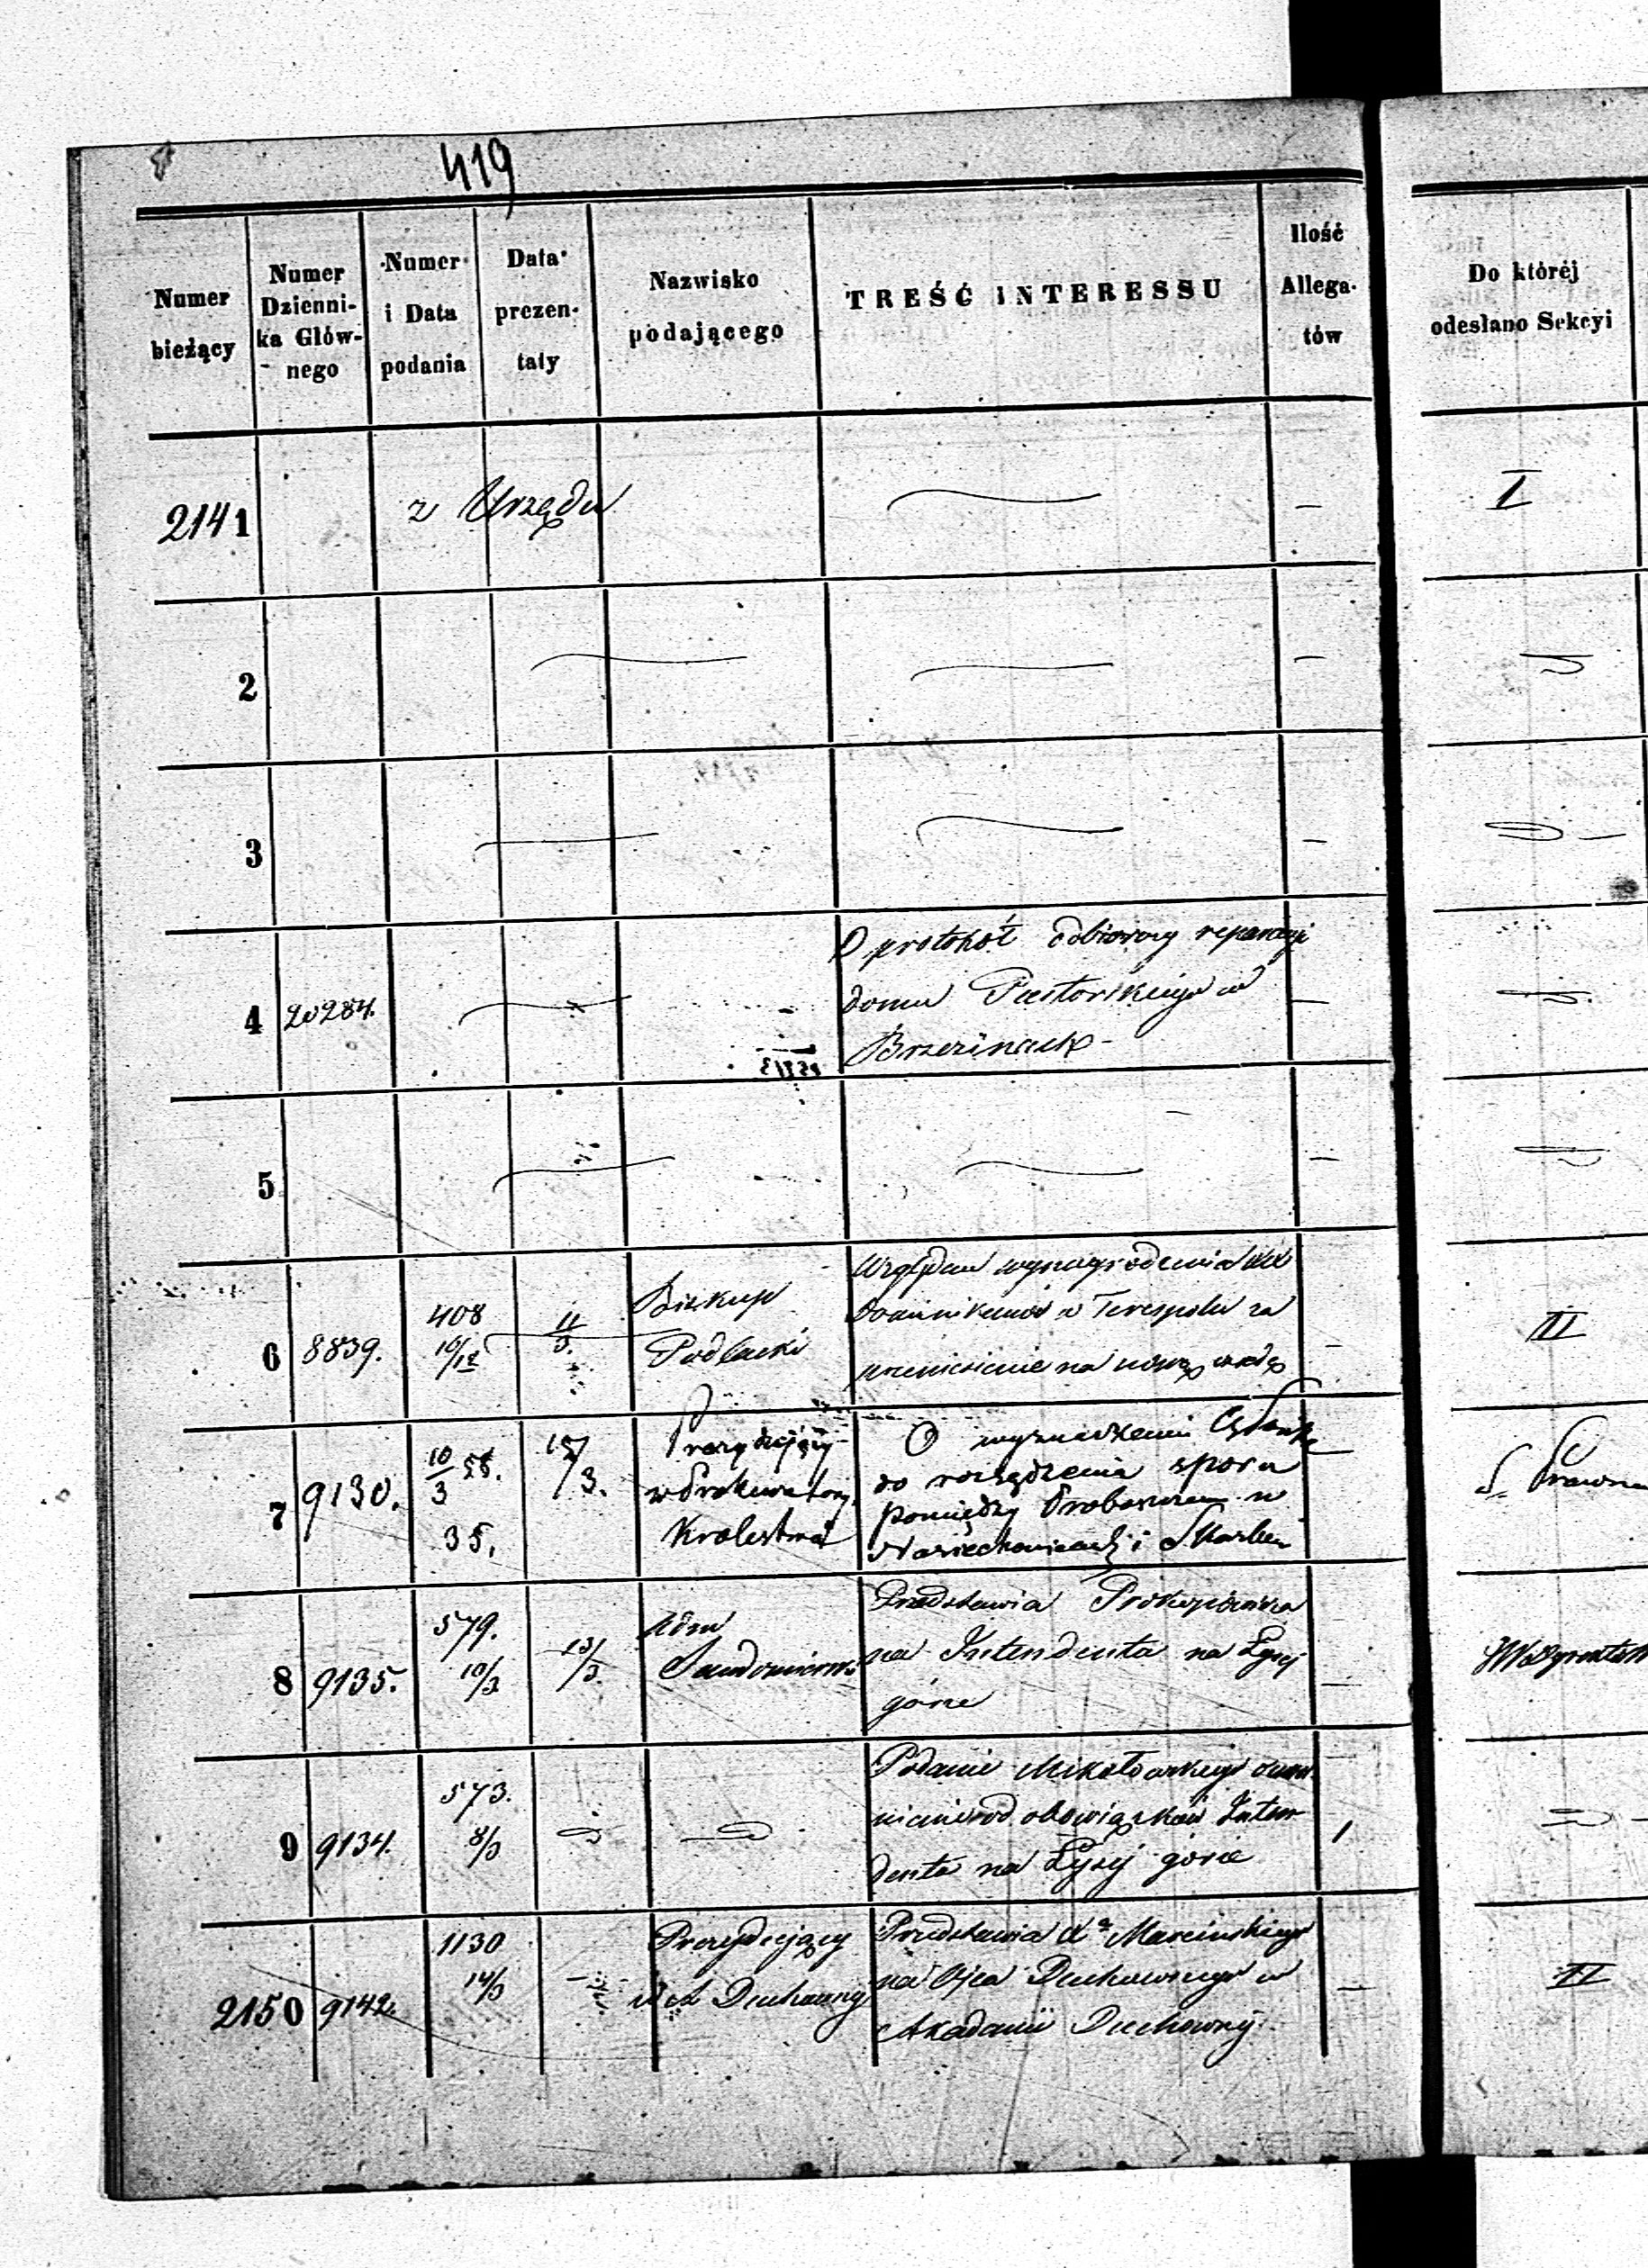 419
Numer bieżący
Numer Dzienni- ka Głów- nego
Numer i Data podania
Data prezen- taty
Nazwisko podającego
TREŚĆ INTERESSU
Ilość Allega- tów
Do któréj odesłano Sekcyi
2141 z Urzędu — I
2
3
4 20284.
O protokół odbiorczy reparacyi
domu Pastorskiego w
Brzezinach
5
6 8839. 408 10/12 11/3.
Biskup
Podlaski
Względem wynagrodzenia
Dominikanów w Terespolu za
przeniesienie na nową
II
7 9130. 10/3 58. 35. 15/3.
Prezydujący
w Prokuratory.
Królestwa
O wyznaczenie Członka
do rozsądzenia sporu
pomiędzy Proboszczem w
i Skarbem
S. Prawna
8 9135. 579. 10/3 13/3.
Adm
Sandomierski
Przedstawia
na Intendenta na Łysej
górze
9 9134. 573. 8/3
Podanie Mikołowskiego
od obowiązków Inten-
denta na Łysej górze
1
2150 9142. 1130 14/3
Prezydujący
w A Duchowny
Przedstawia Xa Marcińskiego
na Ojca Duchownego w
Akademii Duchownej
II